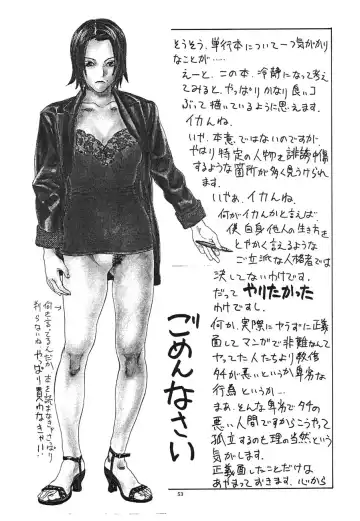 そうそう、単行本について一つ気がかり
なことが……
えーと、この本、冷静になって考え
てみると、やっぱりかなり良いコ
ぶって描いているように思えます。
イカんね。
いや、本意ではないのですが、
やはり特定の人物を誹謗中傷
するような箇所が多く見うけられ
ます。
いやぁ、イカんね。
何がイカんかと言えば
僕自身他人の生き方を
とやかく言えるような
ご立派な人格者では
決してないわけです。
だって やりたかった
わけですし。
何か、実際にヤらずに正義
面してマンガで非難なんて
ヤッてた人たちより数倍
タチが悪いというか卑劣な
行為というか…
まぁ、そんな卑劣でタチの
悪い人間ですからこうやって
孤立するのも理の当然という
気がします。
正義面したことだけは
あやまっておきます、心から
ごめんなさい
何を言ってるんだか、本を読まなきゃさっぱり
判らないね、やっぱり買わなきゃ!!
53